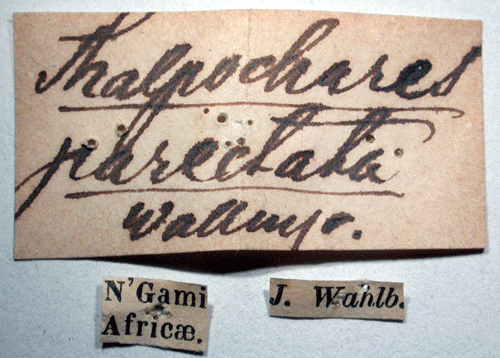 Thalpochares
parectata
Wallengr.
N'Gami
Africæ.
J. Wahlb.